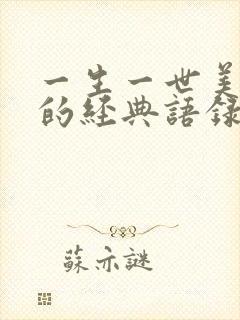 一生一世美
的經典語錄
蘇亦謎